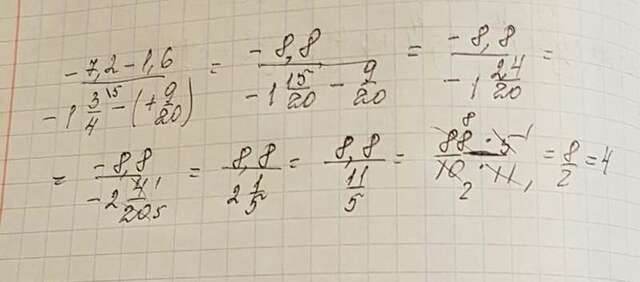 (-7,2-1,6)/(-1 3/4 15 -(+9/20)) = (-8,8)/(-1 15/20 - 9/20) = (-8,8)/(-1 24/20) =
= (-8,8)/(-2 4 1/20 5) = (8,8)/(2 1/5) = (8,8)/(11/5) = (88 8 · 5 1)/(10 2 · 11 1) = 8/2 = 4